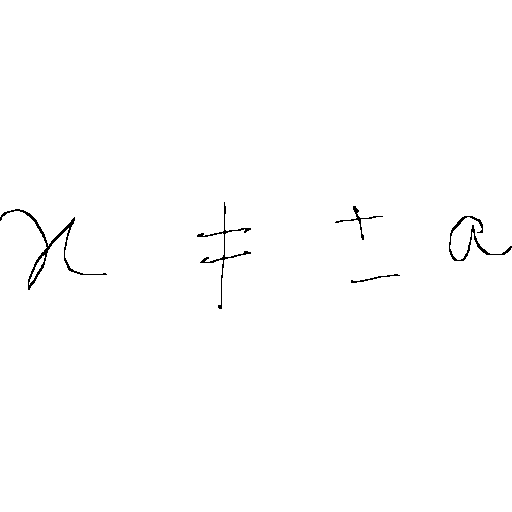 x ≠ ± a